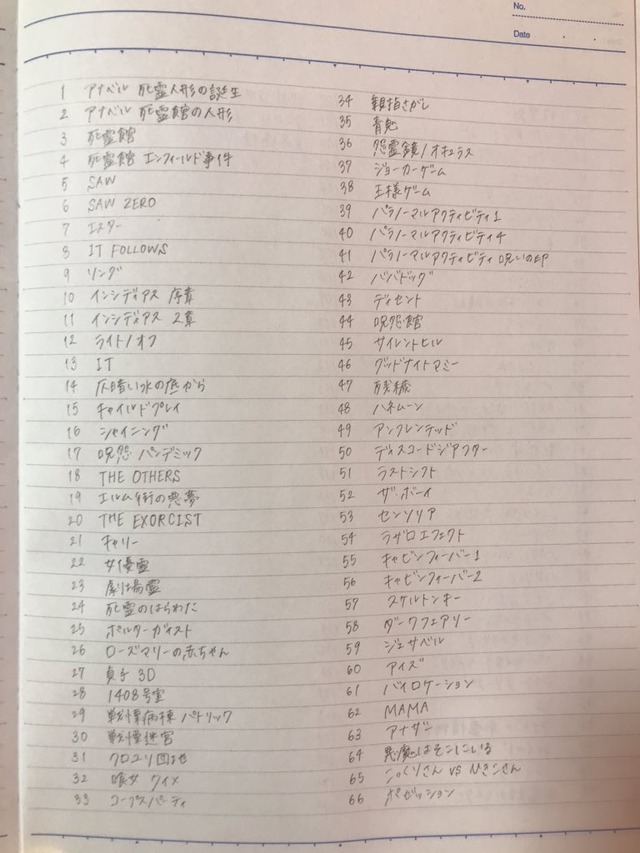 No.
Date
1 アナベル 死霊人形の誕生
2 アナベル 死霊館の人形
3 死霊館
4 死霊館 エンフィールド事件
5 SAW
6 SAW ZERO
7 エスター
8 IT FOLLOWS
9 リング
10 インシディアス 序章
11 インシディアス 2章
12 ライト/オフ
13 IT
14 仄暗い水の底から
15 チャイルドプレイ
16 シャイニング
17 呪怨 パンデミック
18 THE OTHERS
19 エルム街の悪夢
20 THE EXORCIST
21 キャリー
22 女優霊
23 劇場霊
24 死霊のはらわた
25 ポルターガイスト
26 ローズマリーの赤ちゃん
27 貞子 3D
28 1408号室
29 戦慄病棟 パトリック
30 戦慄迷宮
31 クロユリ団地
32 喰女 クイメ
33 コープスパーティ
34 親指さがし
35 青鬼
36 怨霊鏡/オキュラス
37 ジョーカーゲーム
38 王様ゲーム
39 パラノーマルアクティビティ1
40 パラノーマルアクティビティ4
41 パラノーマルアクティビティ 呪いの印
42 ババドッグ
43 ディセント
44 呪怨館
45 サイレントヒル
46 グッドナイトマミー
47 残穢
48 ハネムーン
49 アンフレンデッド
50 ディスコードジアフター
51 ラストシフト
52 ザ・ボーイ
53 センソリア
54 ラザロエフェクト
55 キャビンフィーバー1
56 キャビンフィーバー2
57 スケルトンキー
58 ダークフェアリー
59 ジェサベル
60 アイズ
61 バイロケーション
62 MAMA
63 アナザー
64 悪魔はそこにいる
65 こっくりさん vs ひきこさん
66 ポゼッション